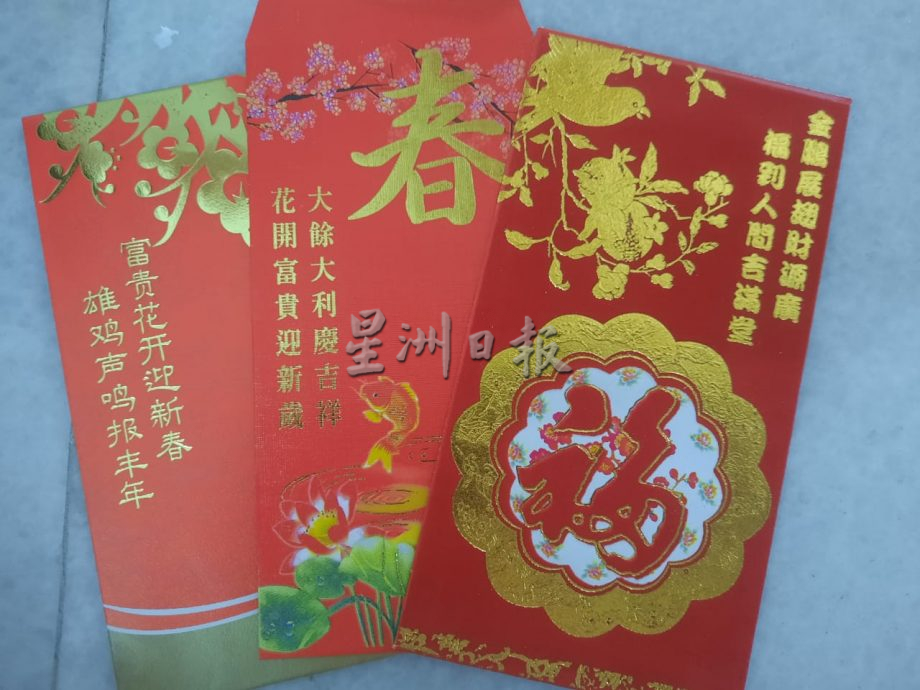 富贵花开迎新春
雄鸡声鸣报丰年
春
大餘大利慶吉祥
花開富貴迎新歲
金鵬展翅財源廣
福到人間吉滿堂
福
星洲日报